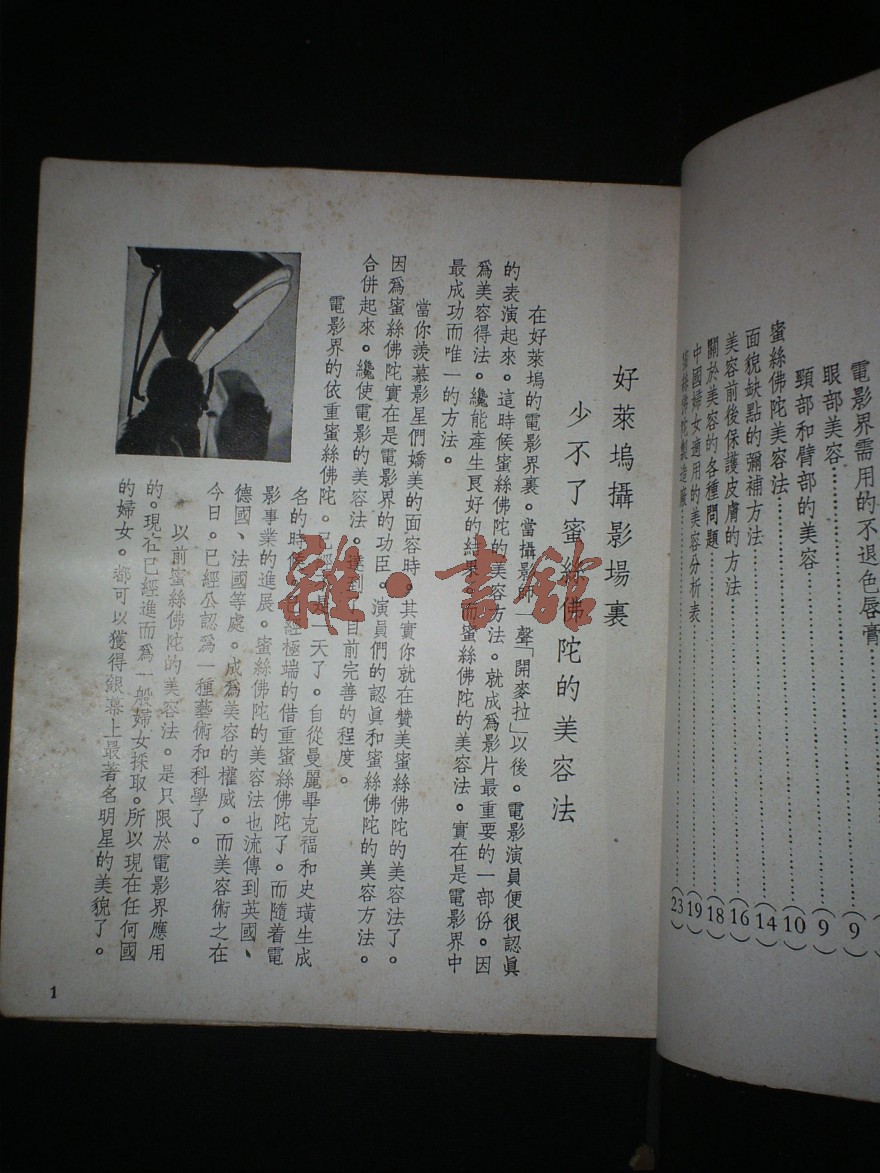 電影界需用的不退色唇膏 9
眼部美容 9
頸部和臂部的美容 10
蜜絲佛陀美容法 14
面貌缺點的彌補方法 16
美容前後保護皮膚的方法 18
關於美容的各種問題 19
中國婦女適用的美容分析表 23
絲佛陀製造廠
好萊塢攝影場裏
少不了蜜絲佛陀的美容法
在好萊塢的電影界裏。當攝影師一聲「開麥拉」以後。電影演員便很認眞
的表演起來。這時候蜜絲佛陀的美容方法。就成爲影片最重要的一部份。因
爲美容得法。纔能產生良好的結果。而蜜絲佛陀的美容法。實在是電影界中
最成功而唯一的方法。
當你羨慕影星們嬌美的面容時。其實你就在贊美蜜絲佛陀的美容法了。
因爲蜜絲佛陀實在是電影界的功臣。演員們的認眞和蜜絲佛陀的美容方法。
合併起來。纔使電影的美容法。達到目前完善的程度。
電影界的依重蜜絲佛陀。已經 是一天了。自從曼麗畢克福和史璜生成
名的時候。已經極端的借重蜜絲佛陀了。而隨着電
影事業的進展。蜜絲佛陀的美容法也流傳到英國、
德國、法國等處。成爲美容的權威。而美容術之在
今日。已經公認爲一種藝術和科學了。
以前蜜絲佛陀的美容法。是只限於電影界應用
的。現在已經進而爲一般婦女採取。所以現在任何國
的婦女。都可以獲得銀幕上最著名明星的美貌了。
1
雜·書館